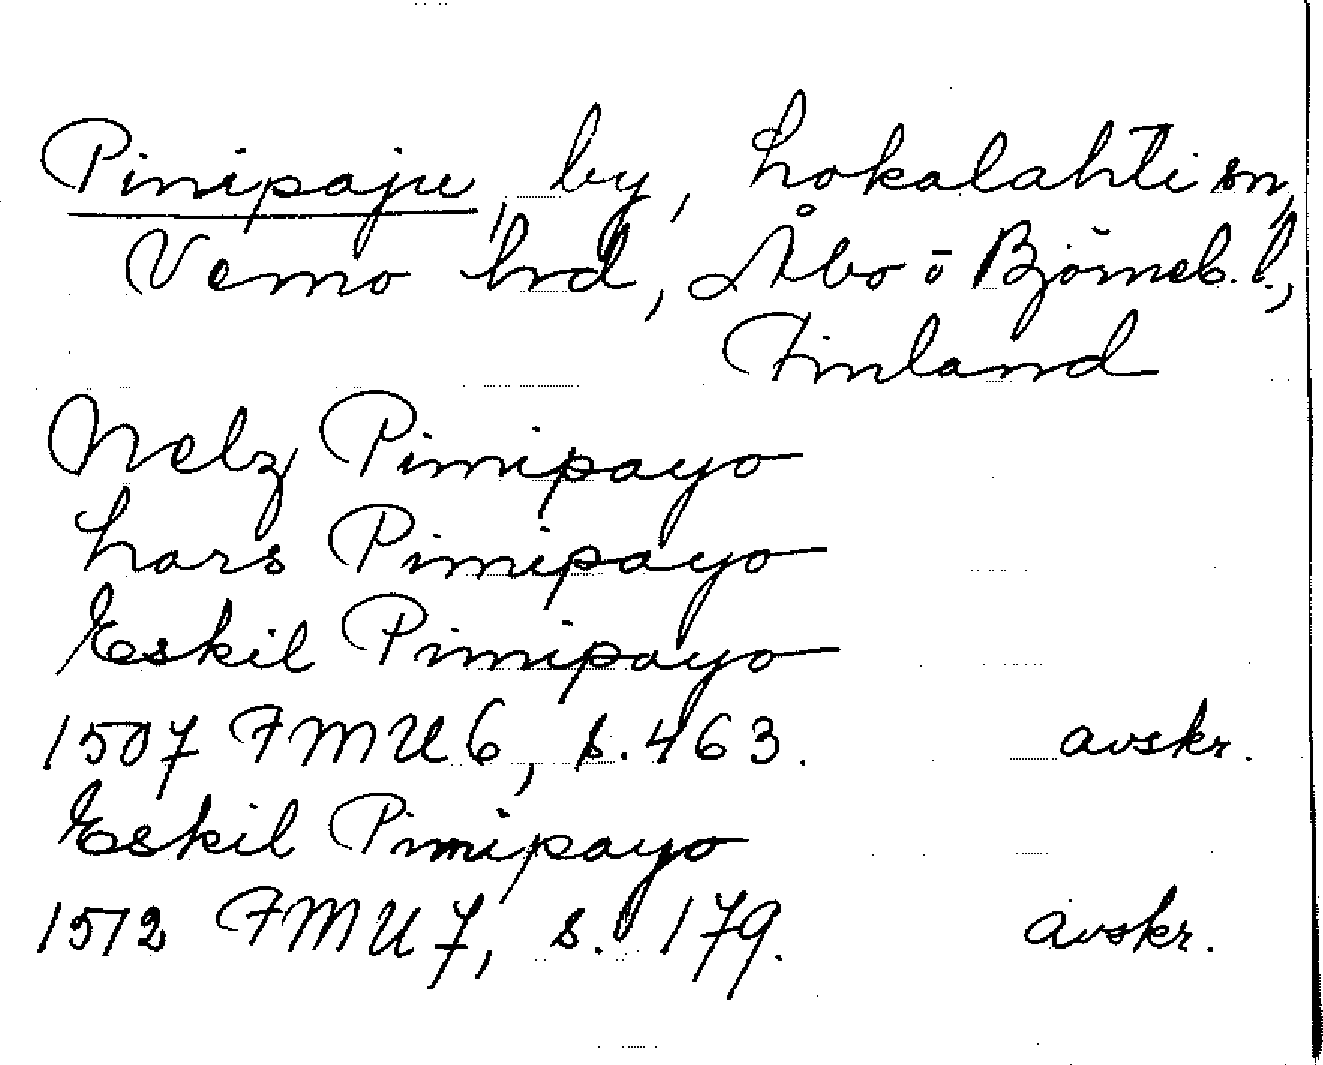 Pinipaju, by, Lokalahti sn,
Vemo hrd, Åbo o Björneb. l.,
Finland
Nelz Pinipayo
Lars Pinipayo
Eskil Pinipayo
1507 FMU 6, s. 463. avskr.
Eskil Pinipayo
1512 FMU 7, s. 179. avskr.